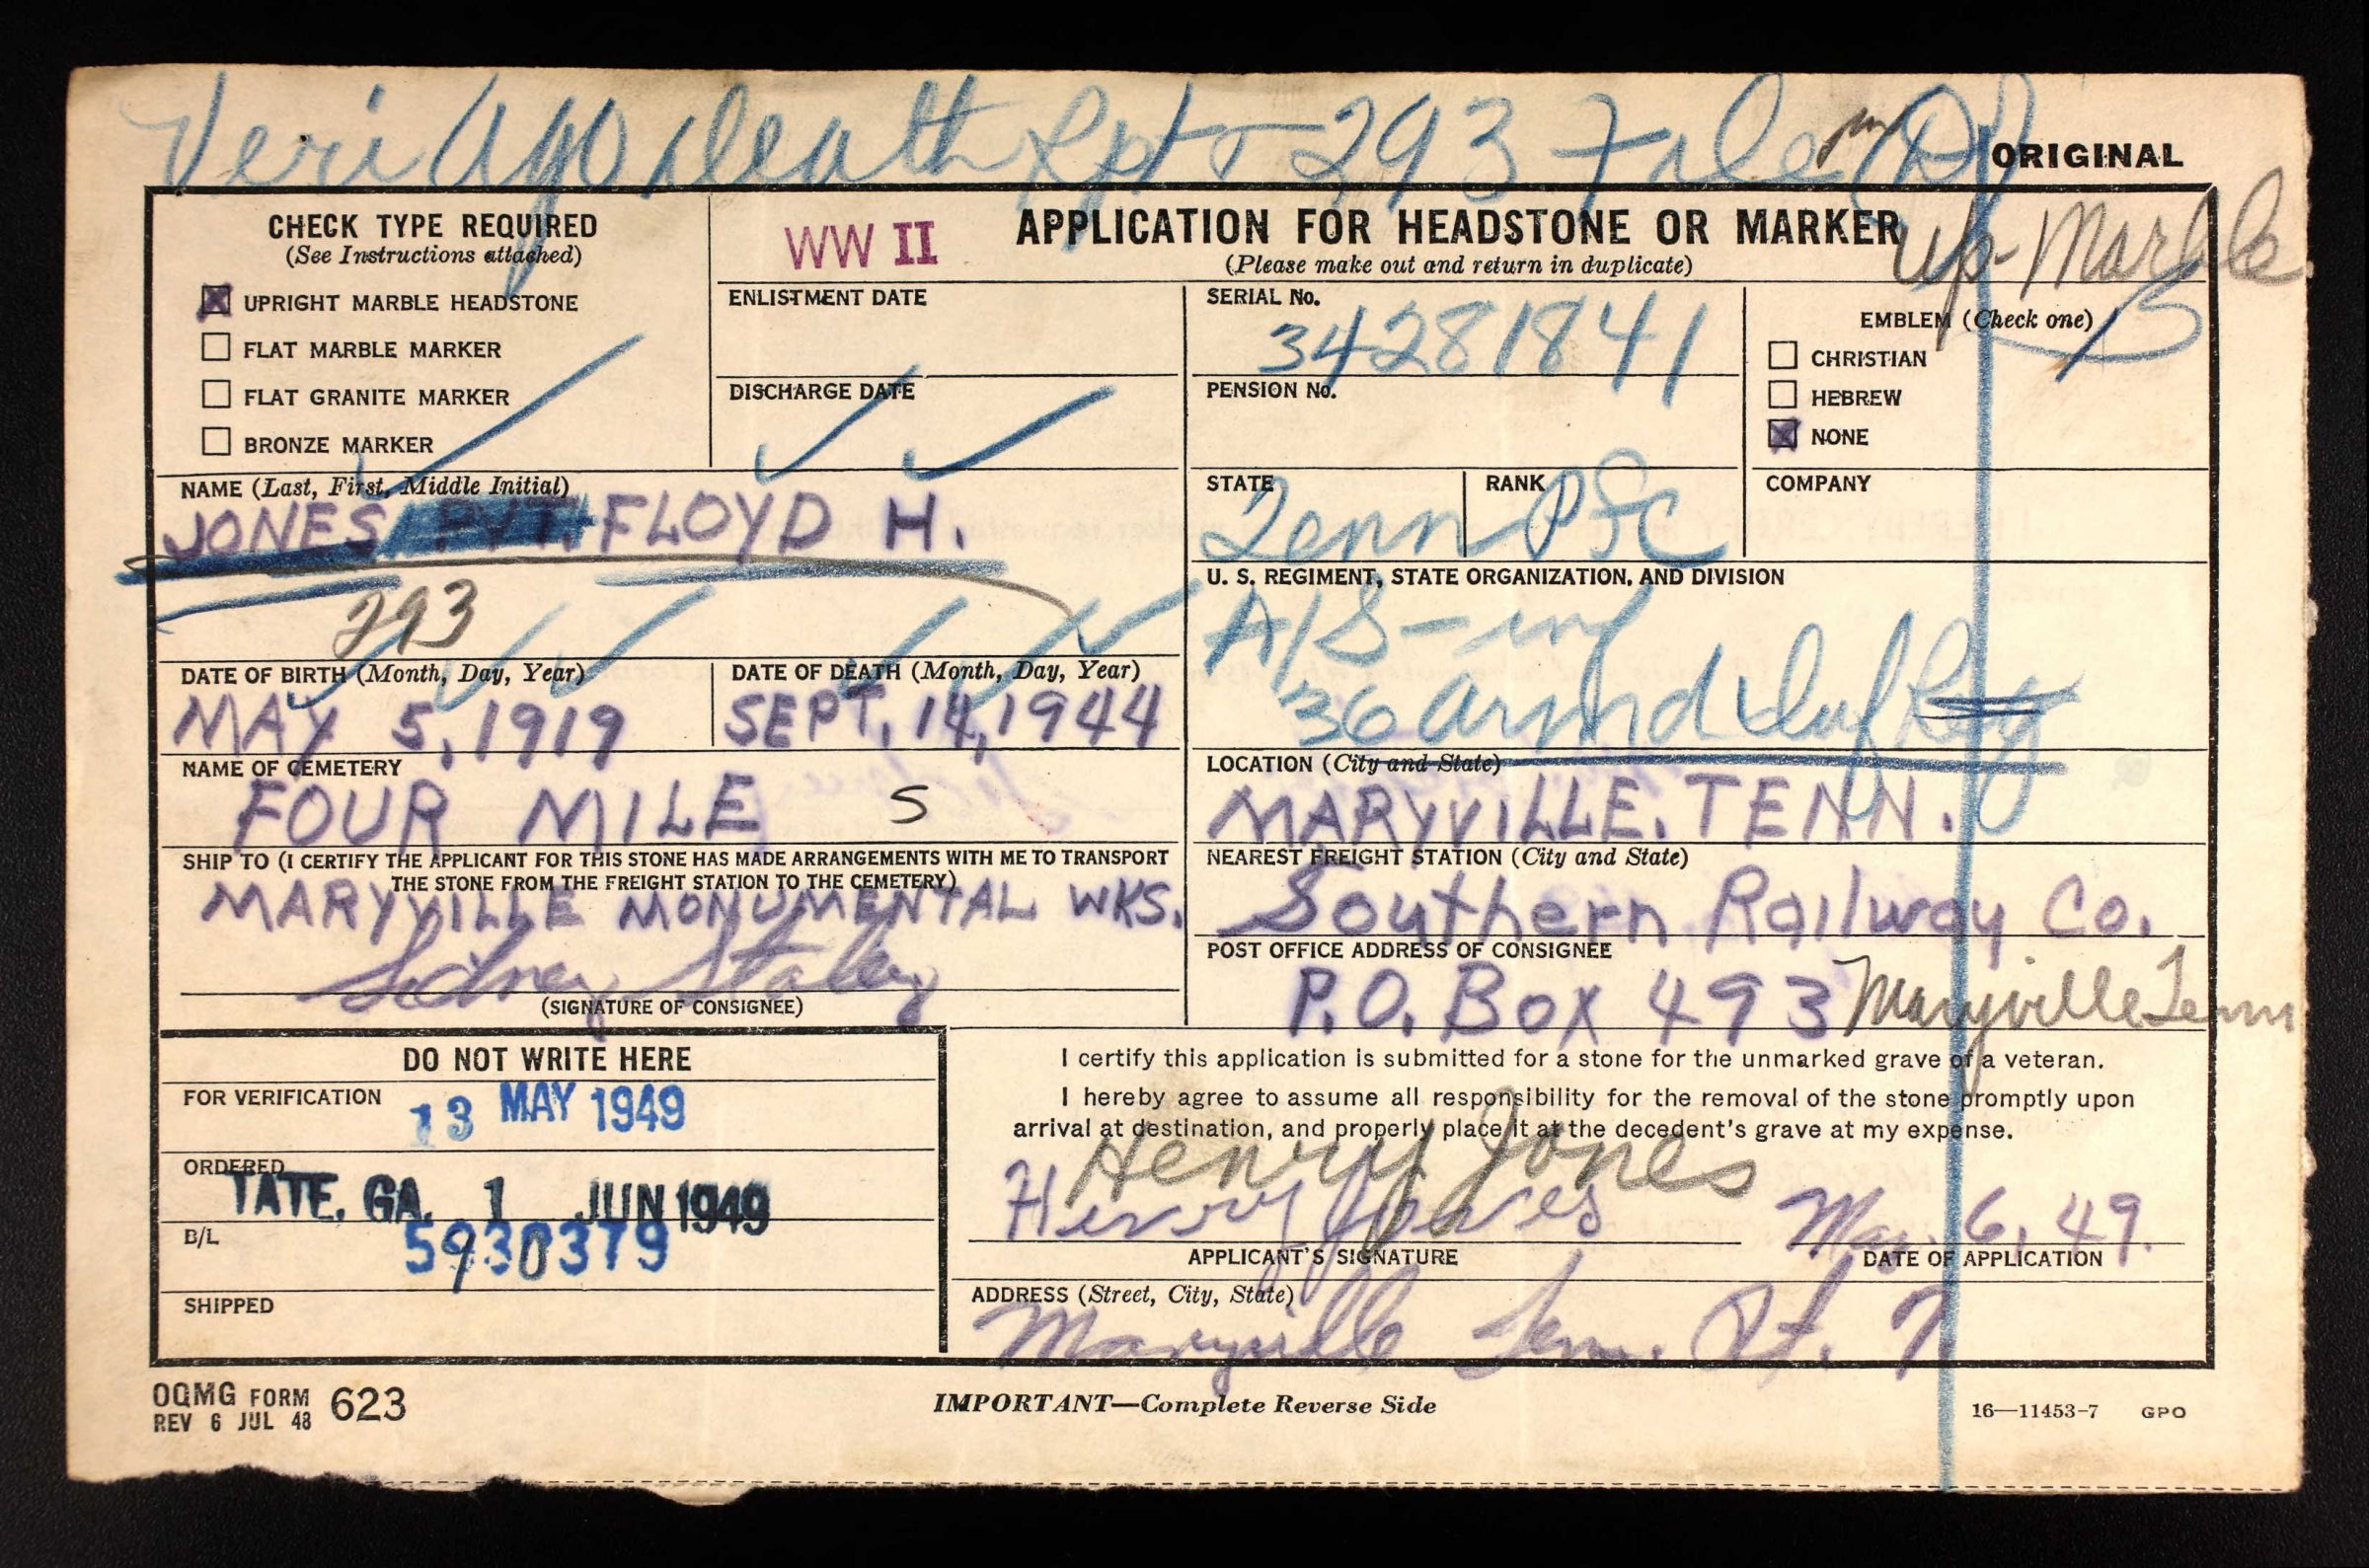 Veri Ago death Rpt - 293 File
ORIGINAL
CHECK TYPE REQUIRED
(See Instructions attached)
UPRIGHT MARBLE HEADSTONE
FLAT MARBLE MARKER
FLAT GRANITE MARKER
BRONZE MARKER
WW II
APPLICATION FOR HEADSTONE OR MARKER
(Please make out and return in duplicate)
Up-Marble
ENLISTMENT DATE
DISCHARGE DATE
SERIAL No.
34281841
PENSION No.
EMBLEM (Check one)
CHRISTIAN
HEBREW
NONE
NAME (Last, First, Middle Initial)
JONES, PVT. FLOYD H.
293
STATE
Tenn
RANK
Pfc
COMPANY
U. S. REGIMENT, STATE ORGANIZATION, AND DIVISION
A/S - inf
36 Armd Inf Reg
DATE OF BIRTH (Month, Day, Year)
MAY 5, 1919
DATE OF DEATH (Month, Day, Year)
SEPT. 14, 1944
NAME OF CEMETERY
FOUR MILE S
LOCATION (City and State)
MARYVILLE, TENN.
SHIP TO (I CERTIFY THE APPLICANT FOR THIS STONE HAS MADE ARRANGEMENTS WITH ME TO TRANSPORT
THE STONE FROM THE FREIGHT STATION TO THE CEMETERY)
MARYVILLE MONUMENTAL WKS.
Sidney Staley
(SIGNATURE OF CONSIGNEE)
NEAREST FREIGHT STATION (City and State)
Southern Railway Co.
POST OFFICE ADDRESS OF CONSIGNEE
P.O. Box 493 Maryville Tenn
DO NOT WRITE HERE
FOR VERIFICATION
13 MAY 1949
ORDERED
TATE, GA. 1 JUN 1949
B/L
5930379
SHIPPED
I certify this application is submitted for a stone for the unmarked grave of a veteran.
I hereby agree to assume all responsibility for the removal of the stone promptly upon
arrival at destination, and properly place it at the decedent's grave at my expense.
Henry Jones
Henry Jones
APPLICANT'S SIGNATURE
Mar. 6, 49.
DATE OF APPLICATION
ADDRESS (Street, City, State)
Maryville Tenn. Rt. 7
OQMG FORM 623
REV 6 JUL 48
IMPORTANT—Complete Reverse Side
16—11453-7 GPO